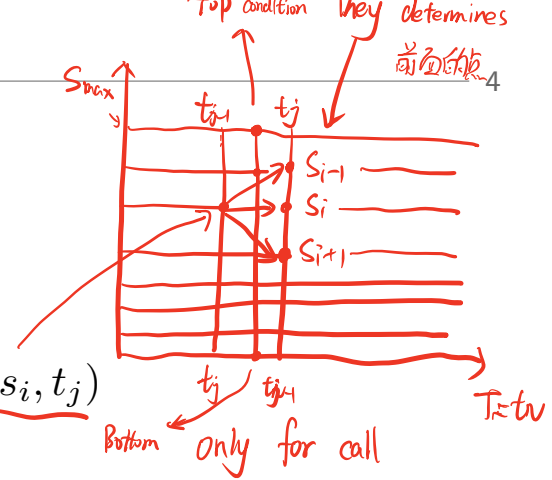 Top condition They determines
前面的値
4
Smax
tj-1 tj
Si-1
Si
Si+1
si, tj)
tj tj+1
T=tN
Bottom only for call